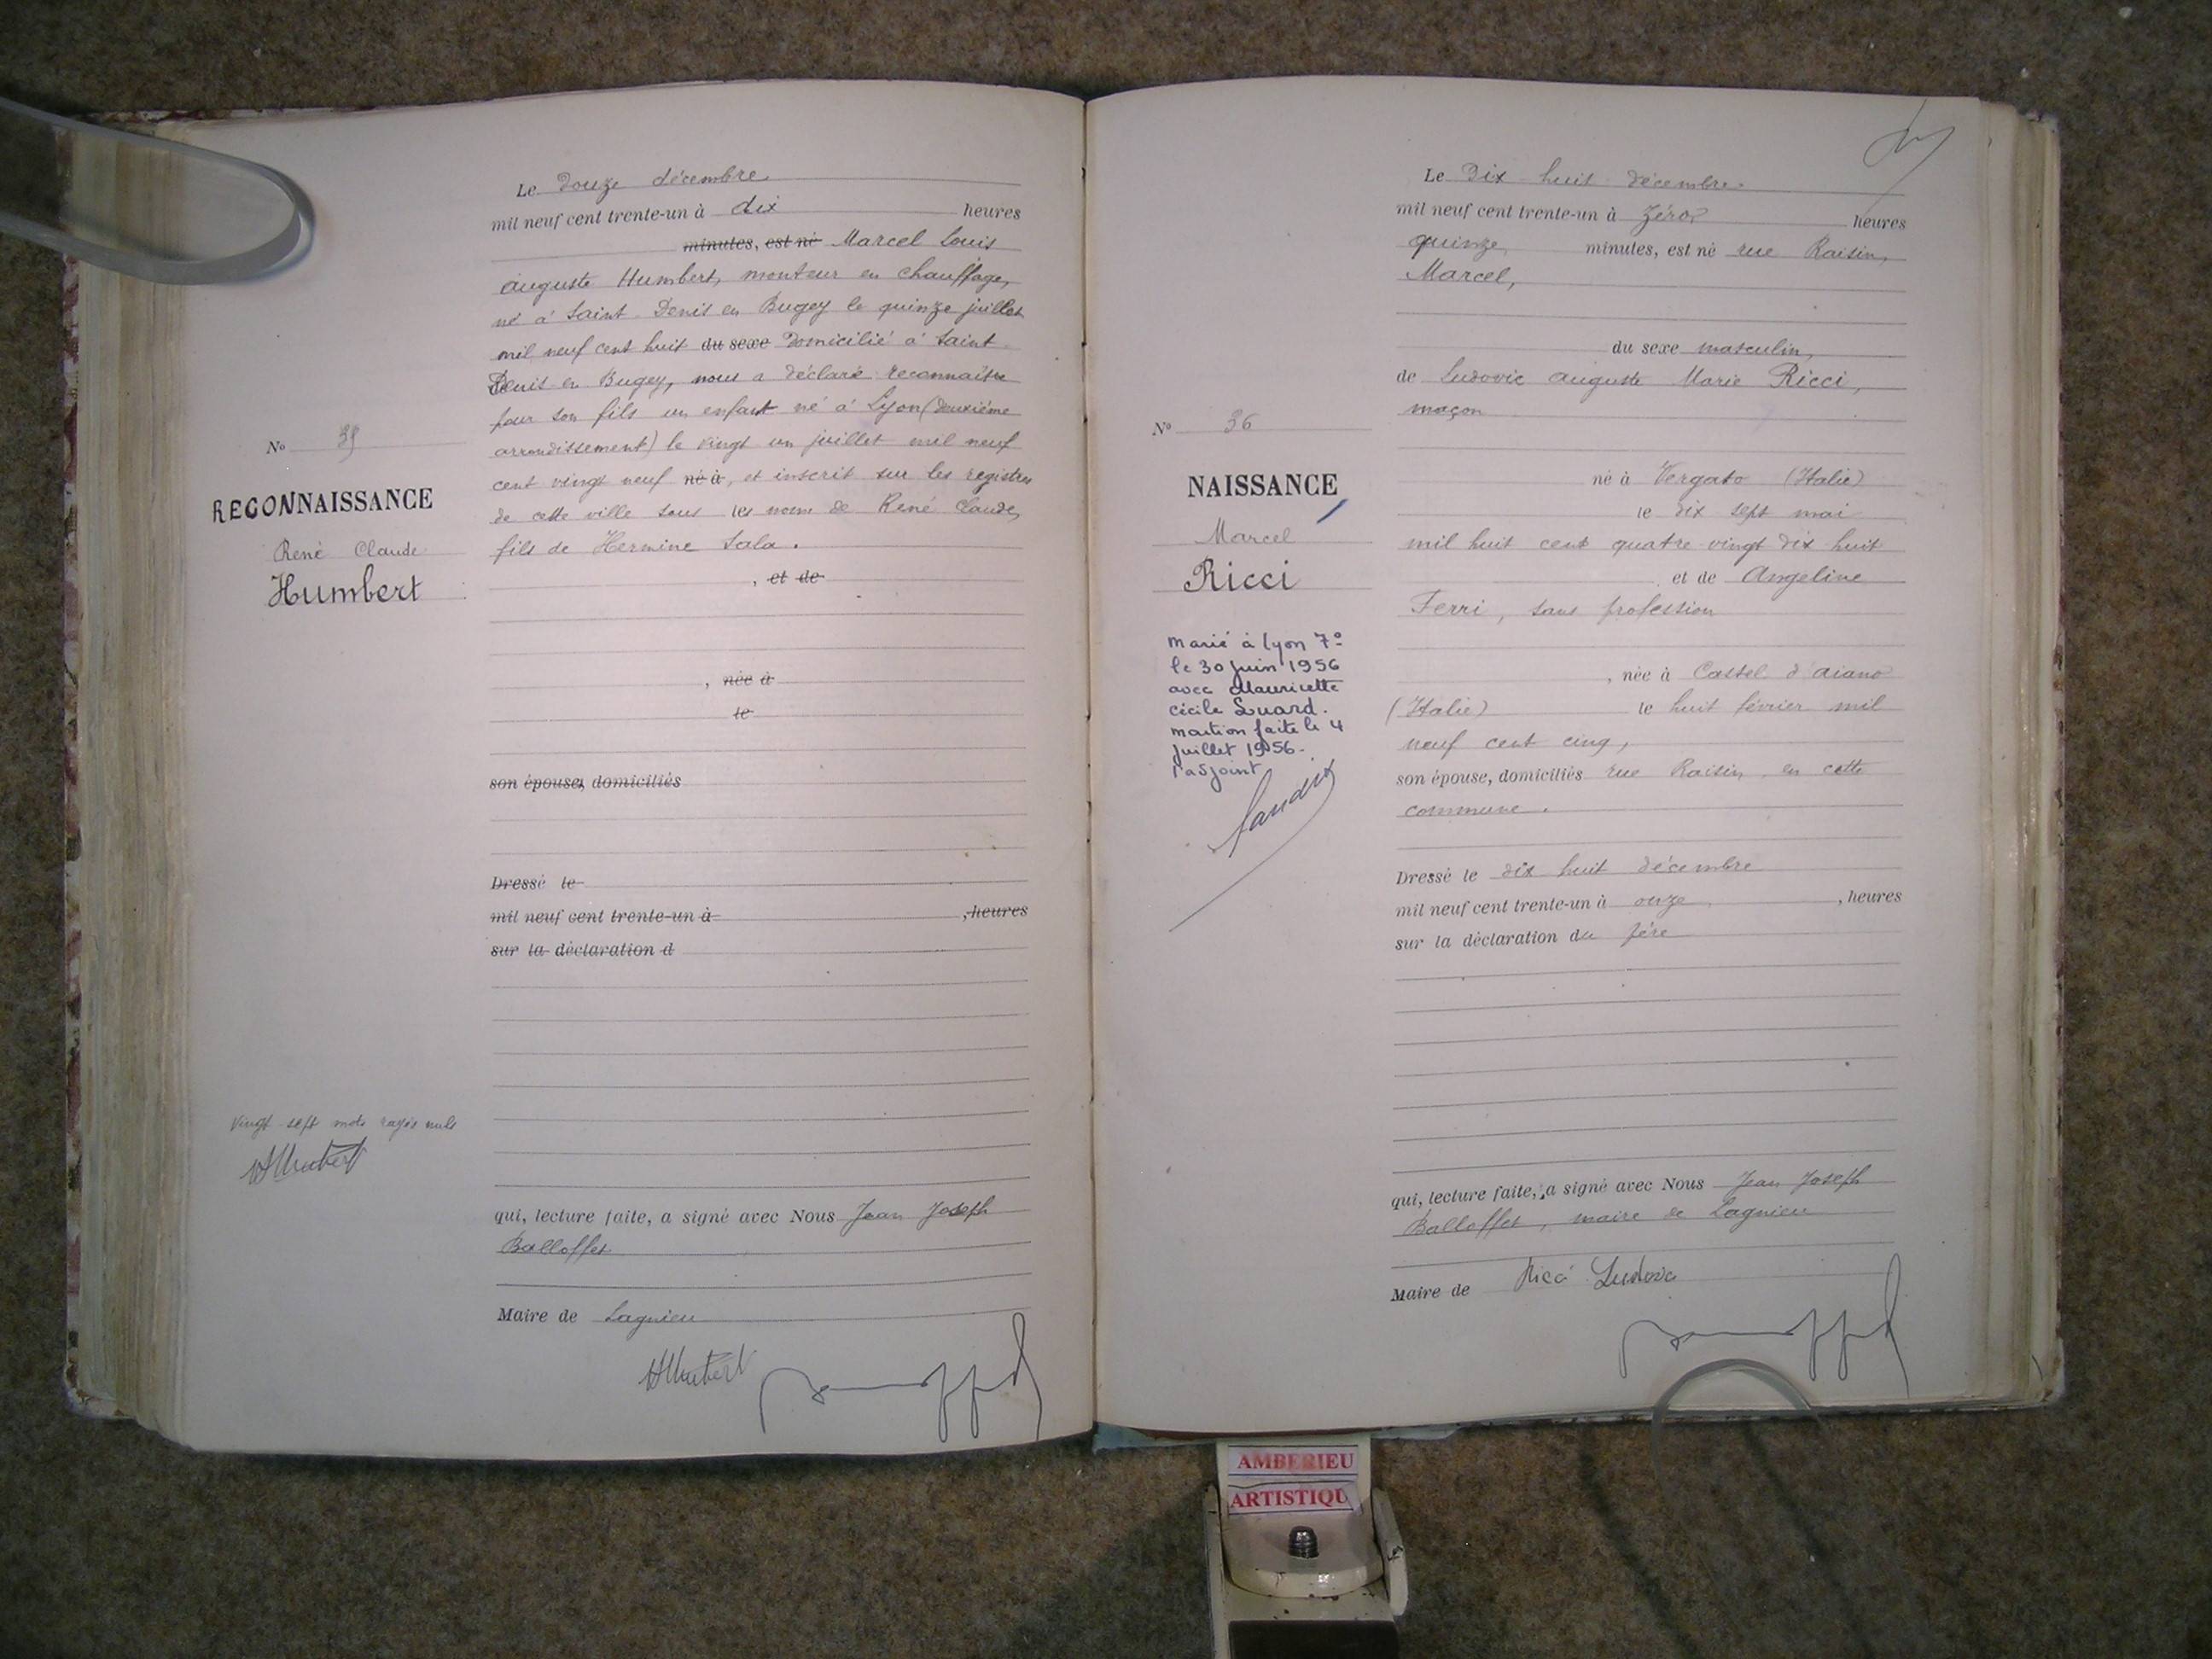 No 35
RECONNAISSANCE
René Claude
Humbert
vingt sept mots rayés nuls
Le Douze décembre
mil neuf cent trente-un à dix heures
minutes, est né Marcel Louis
Auguste Humbert, monteur en chauffage,
né à Saint Denis en Bugey le quinze juillet
mil neuf cent huit du sexe Domicilié à Saint
Denis en Bugey, nous a déclaré reconnaître
pour son fils un enfant né à Lyon (deuxième
arrondissement) le vingt un juillet mil neuf
cent vingt neuf né à, et inscrit sur les registres
de cette ville sous les noms de René Claude,
fils de Hermine Sala.
, et de
, née à
le
son épouse, domiciliés
Dressé le
mil neuf cent trente-un à , heures
sur la déclaration d
qui, lecture faite, a signé avec Nous Jean Joseph
Balloffet
Maire de Lagnieu
No 36
NAISSANCE
Marcel
Ricci
marié à Lyon 7e
le 30 juin 1956
avec Mauricette
Cécile Suard.
mention faite le 4
juillet 1956-
l'adjoint
Le Dix huit décembre
mil neuf cent trente-un à zéro heures
quinze minutes, est né rue Raisin,
Marcel,
du sexe masculin,
de Ludovic Auguste Marie Ricci,
maçon
né à Vergato (Italie)
le dix sept mai
mil huit cent quatre vingt dix huit
et de Angeline
Ferri, sans profession
, née à Castel d'aiano
(Italie) le huit février mil
neuf cent cinq,
son épouse, domiciliés rue Raisin en cette
commune.
Dressé le dix huit décembre
mil neuf cent trente-un à onze , heures
sur la déclaration du père
qui, lecture faite, a signé avec Nous Jean Joseph
Balloffet, maire de Lagnieu
Maire de Ricci Ludovic
AMBERIEU
ARTISTIQU